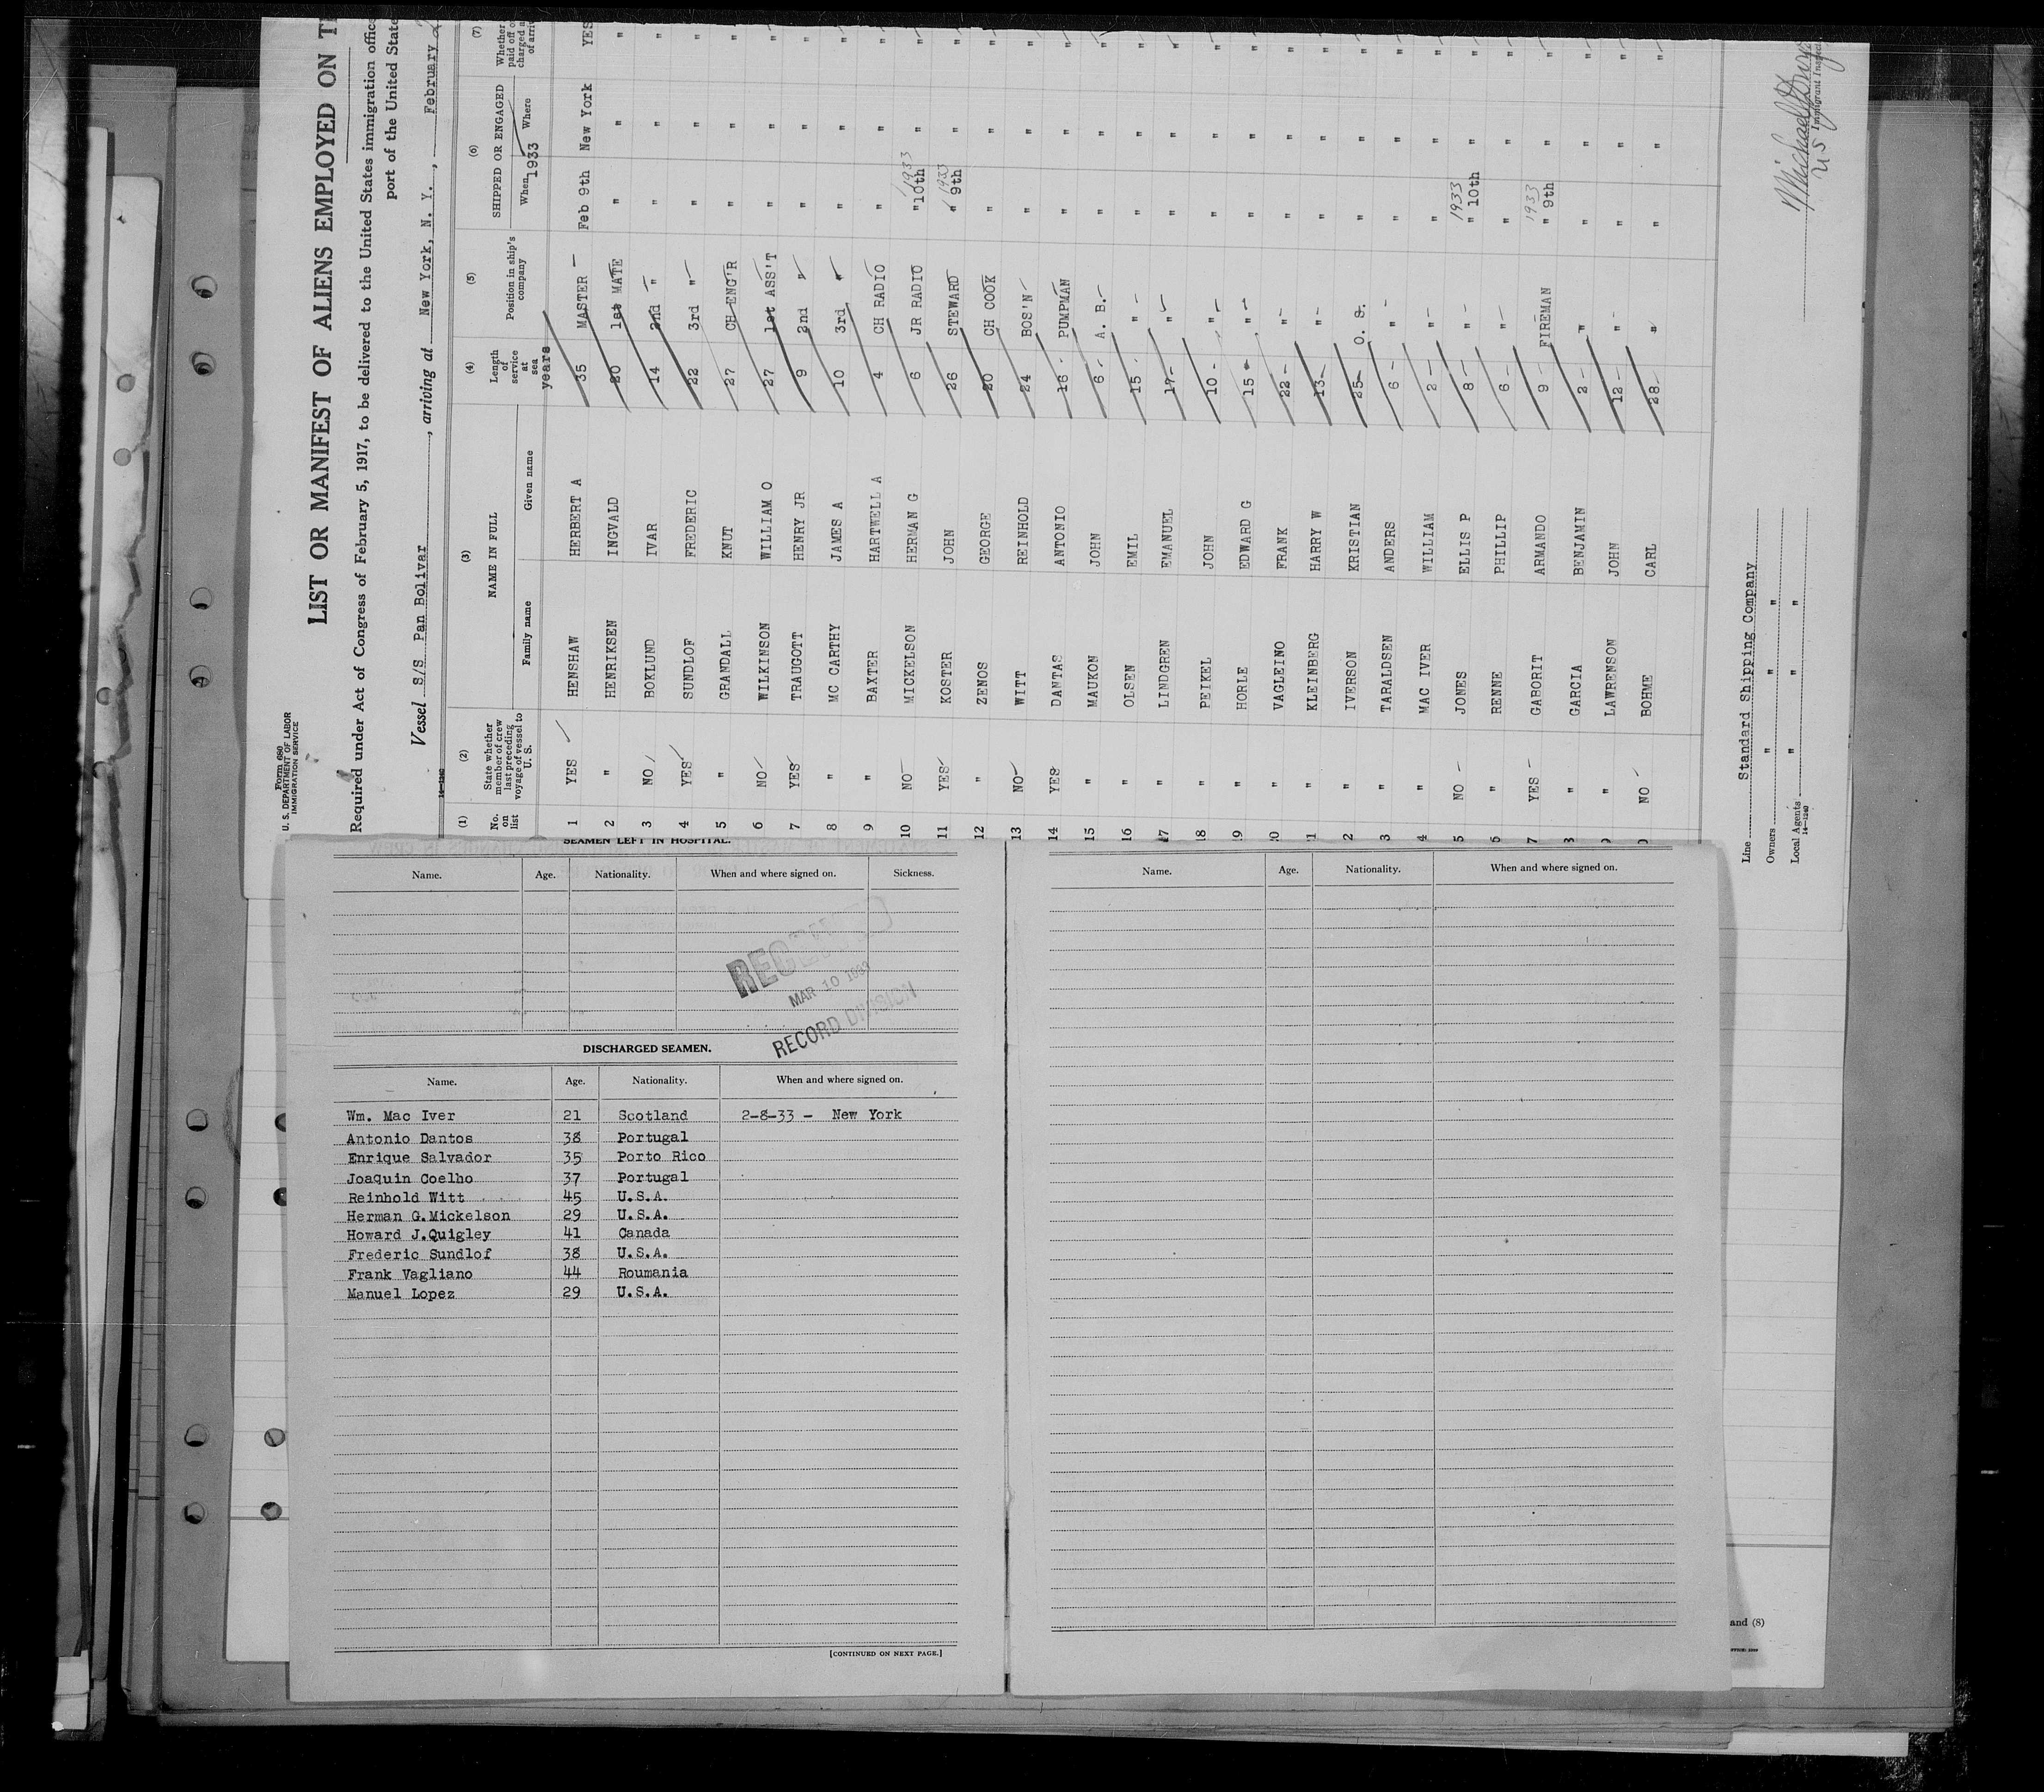 Form 680
U. S. DEPARTMENT OF LABOR
IMMIGRATION SERVICE
LIST OR MANIFEST OF ALIENS EMPLOYED ON
Required under Act of Congress of February 5, 1917, to be delivered to the United States immigration
port of the United
Vessel S/S Pan Bolivar, arriving at New York, N. Y., February
(1) (2) (3) (4) (5) (6) (7)
No. on list
State whether member of crew last preceding voyage of vessel to U. S.
NAME IN FULL
Family name Given name
Length of service at sea
years
Position in ship's company
SHIPPED OR ENGAGED
When Where
1933
Whether paid off
1 YES HENSHAW HERBERT A 35 MASTER Feb 9th New York YES
2 " HENRIKSEN INGVALD 20 1st MATE " " "
3 NO BOKLUND IVAR 14 2nd " " " "
4 YES SUNDLOF FREDERIC 22 3rd " " " "
5 " GRANDALL KNUT 27 CH ENG'R " " "
6 NO WILKINSON WILLIAM O 27 1st ASS'T " " "
7 YES TRAUGOTT HENRY JR 9 2nd " " " "
8 " MC CARTHY JAMES A 10 3rd " " " "
9 " BAXTER HARTWELL A 4 CH RADIO " " "
10 NO MICKELSON HERMAN G 6 JR RADIO " 10th 1933 " "
11 YES KOSTER JOHN 26 STEWARD " 9th 1933 " "
12 " ZENOS GEORGE 20 CH COOK " " "
13 NO WITT REINHOLD 24 BOS'N " " "
14 YES DANTAS ANTONIO 16 PUMPMAN " " "
15 " MAUKON JOHN 6 A. B. " " "
16 " OLSEN EMIL 15 " " " "
17 " LINDGREN EMANUEL 17 " " " "
18 " PEIKEL JOHN 10 " " " "
19 " HORLE EDWARD G 15 " " " "
20 " VAGLEINO FRANK 22 " " " "
1 " KLEINBERG HARRY W 13 " " " "
2 " IVERSON KRISTIAN 25 O. S. " " "
3 " TARALDSEN ANDERS 6 " " " "
4 " MAC IVER WILLIAM 2 " " " "
5 NO JONES ELLIS P 8 " " 10th 1933 " "
6 " RENNE PHILLIP 6 " " " "
7 YES GABORIT ARMANDO 9 FIREMAN " 9th 1933 " "
8 " GARCIA BENJAMIN 2 " " " "
9 " LAWRENSON JOHN 12 " " " "
0 NO BOHME CARL 28 " " " "
Line Standard Shipping Company
Owners " " "
Local Agents " " "
14-1240
US Immigrant
SEAMEN LEFT IN HOSPITAL.
Name. Age. Nationality. When and where signed on. Sickness.
RECEIVED
MAR 10 1933
RECORD DIVISION
DISCHARGED SEAMEN.
Name. Age. Nationality. When and where signed on.
Wm. Mac Iver 21 Scotland 2-8-33 - New York
Antonio Dantos 38 Portugal
Enrique Salvador 35 Porto Rico
Joaquin Coelho 37 Portugal
Reinhold Witt 45 U.S.A.
Herman G.Mickelson 29 U.S.A.
Howard J.Quigley 41 Canada
Frederic Sundlof 38 U.S.A.
Frank Vagliano 44 Roumania
Manuel Lopez 29 U.S.A.
[CONTINUED ON NEXT PAGE.]
Name. Age. Nationality. When and where signed on.
and (8)